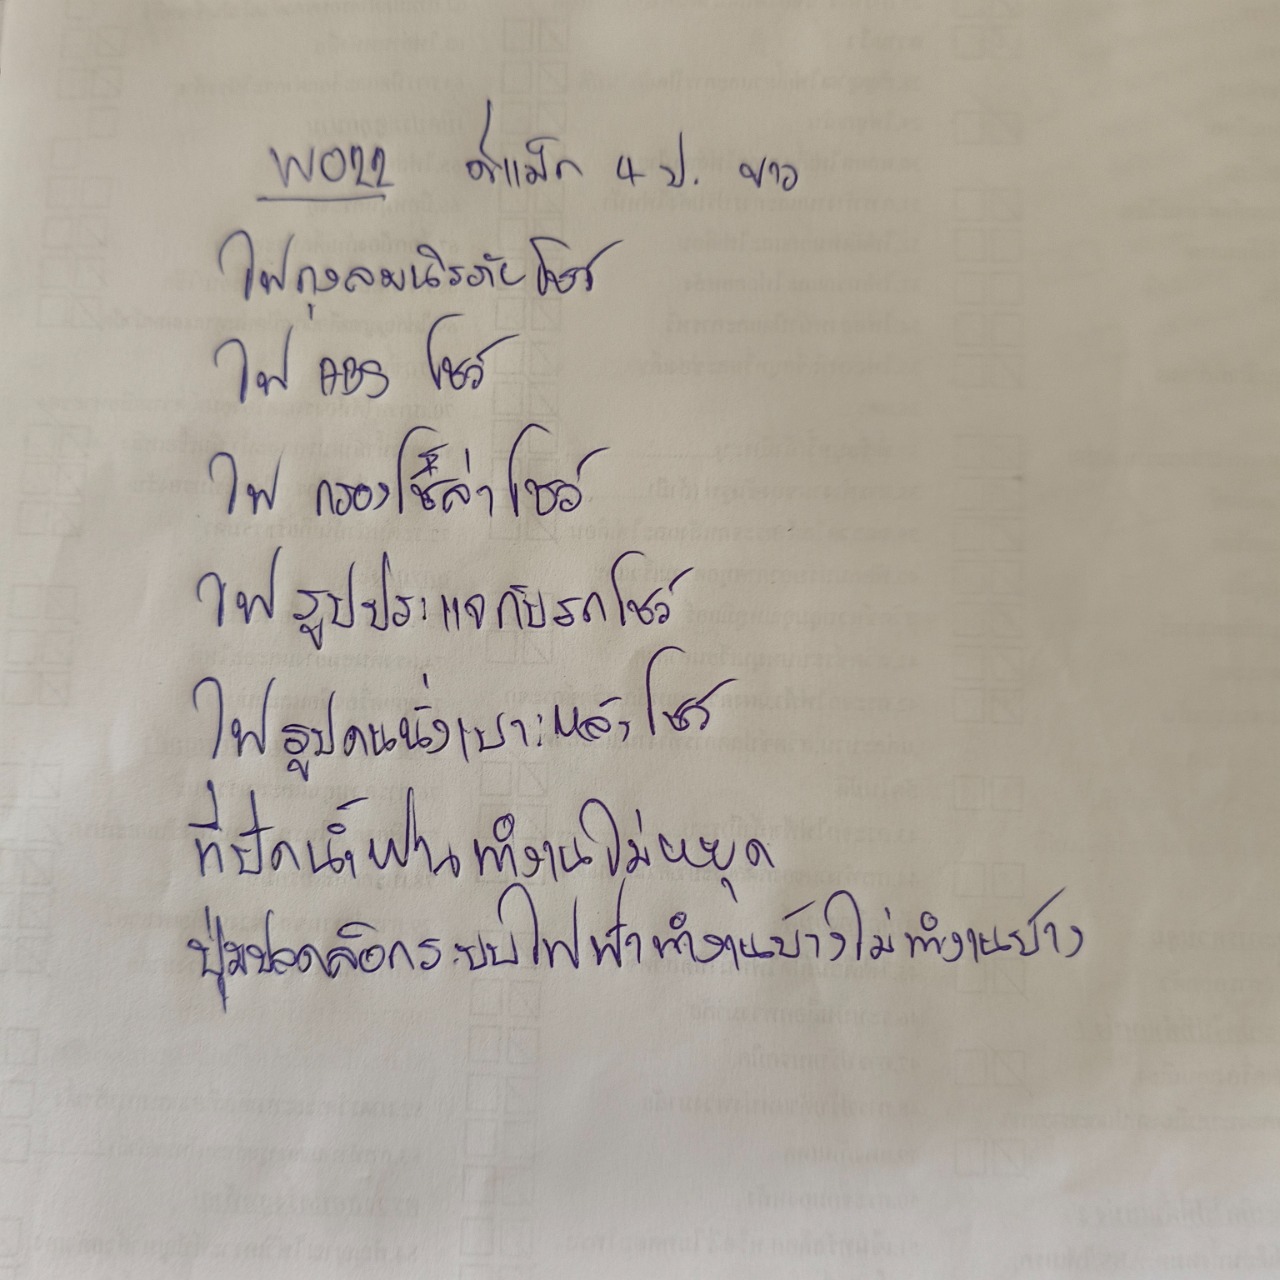 WO22 ดีแม็ก 4 ป. ขาว
ไฟถุงลมนิรภัยโชว์
ไฟ ABS โชว์
ไฟ กรองโซล่าโชว์
ไฟรูปประแจกับรถโชว์
ไฟรูปคนนั่งเบาะหลังโชว์
ที่ปัดน้ำฝนทำงานไม่หยุด
ปุ่มปลดล็อกระบบไฟฟ้าทำงานบ้างไม่ทำงานบ้าง